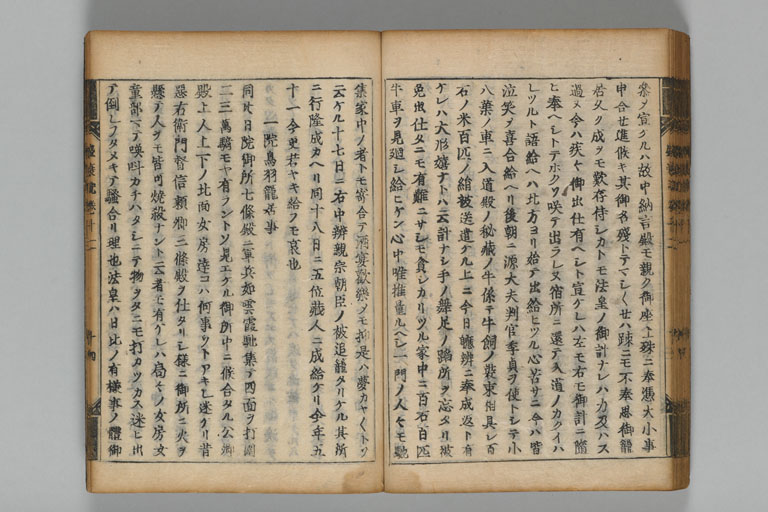 ヲ宣ケルハ故中納言殿モ親ク御座上殊ニ奉憑大小事
申合せ進候キ其御名残トテマシ〱せハ踈ニモ不奉思御籠
居久ク成ヌモ歎存侍シカトモ法皇ノ御計ナレハ力及ハス
過ヌ今ハ疾々御出仕有ヘシト宣ケレハ左モ右モ御計ニ隨
ヒ奉ヘシトテホクソ咲テ出ラレヌ宿所ニ還テ入道ノカクイハ
レツルト語給ヘハ北方ヨリ始テ出給ヒツル心苦サニ今ハ皆
泣笑ヲ喜合給ヘリ後朝ニ源大夫判官季貞ヲ使トシテ小
八葉ノ車ニ入道殿ノ秘蔵ノ牛係テ牛飼ノ装束相具し百
石ノ米百匹ノ絹被送遣ケル上ニ今日軈辨ニ奉成返ト有
ケレハ大形嬉ナトハ云計ナシ手ノ舞足ノ踏所ヲ忘タリ被
免出仕タニモ有難ニサシモ貧シカリツル家中ニ百石百匹
牛車ヲ見廻し給ヒケン心中唯推量ルヘシ一門ノ人々モ馳
集家中ノ者トモ寄合テ酒宴歓樂ヲモ抑是ハ夢カヤ〱トソ
云ケル十七日ニ右中辨親宗朝臣ノ被追籠タリケル其所
ニ行隆成カヘリ同十八日ニ五位蔵人ニ成給ケリ今年五
十一今更若ヤキ給フモ哀也
一院鳥羽籠居事
同廿日院御所七條殿ニ軍兵如雲霞馳集テ四面ヲ打圍
二三萬騎モヤ有ラントソ見エケル御所中ニ候合タル公卿
殿上人上下ノ北面女房達コハ何事ソトアキレ迷ケリ昔
惡右衛門督信頼卿三條殿ヲ仕タリシ様ニ御所ニ火ヲ
懸テ人ヲモ皆可燒殺ナント云者モ有ケレハ局々ノ女房女
童部マテ喚叫カチハタシニテ物ヲタニモ打カツカス迷ヒ出
テ倒レフタメキテ騒合リ理也法皇ハ日比ノ有様事ノ體御